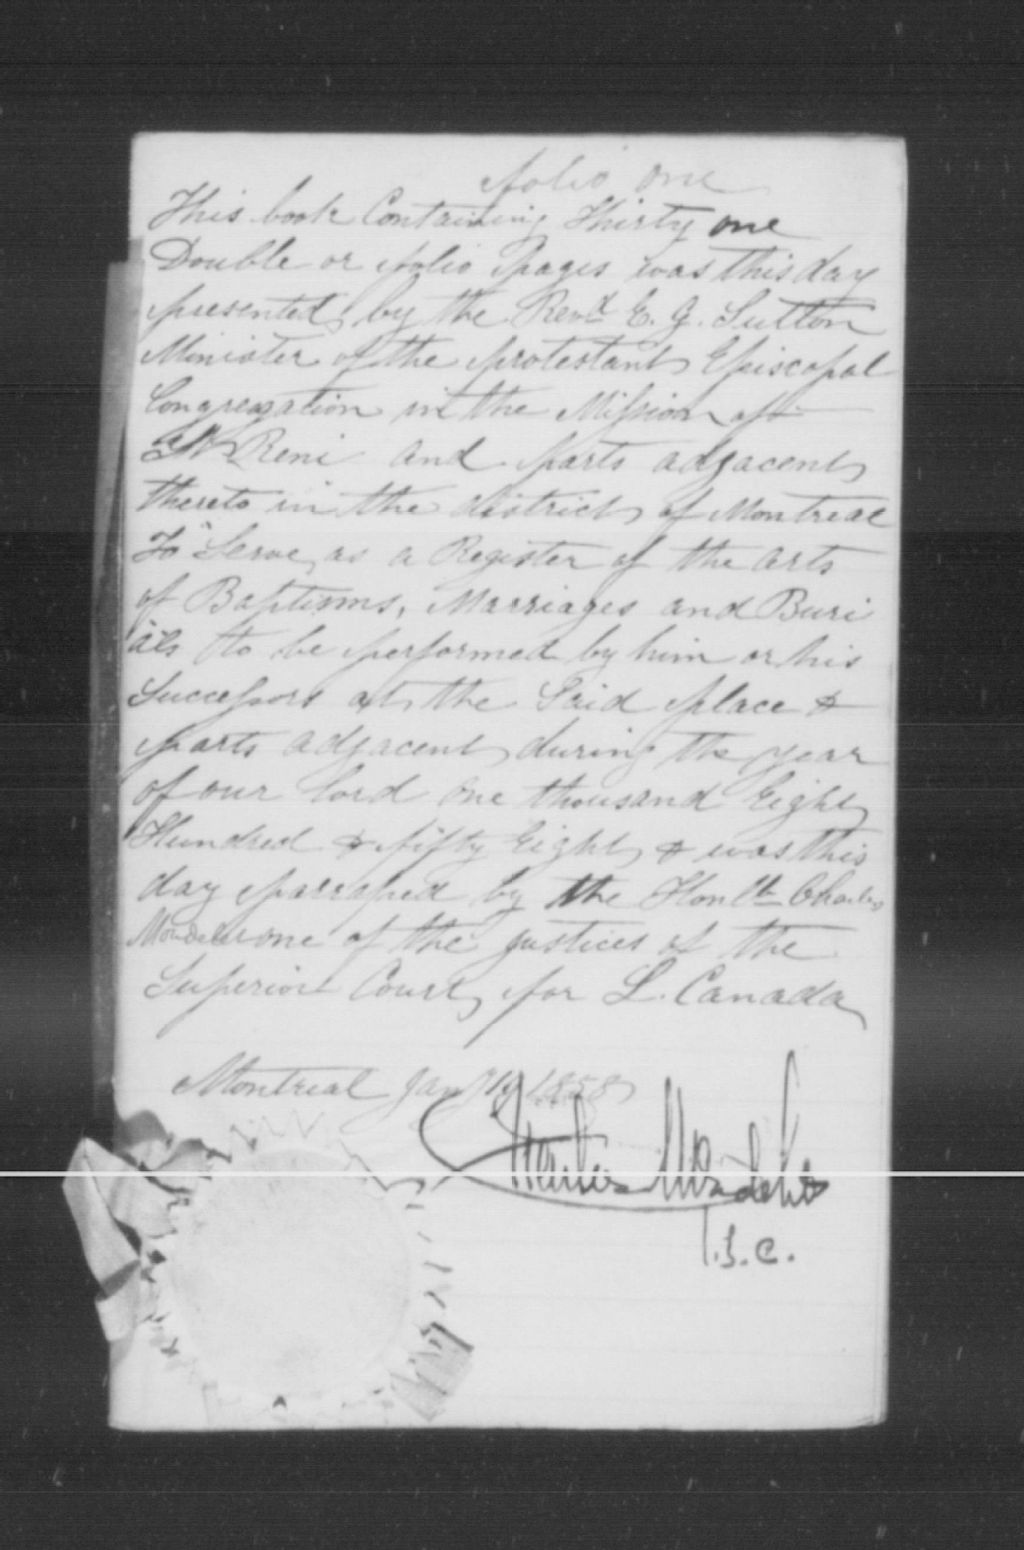 folio one
This book Containing Thirty one
Double or folio pages was this day
presented by the Revd. E. G. Sutton
Minister of the protestant Episcopal
Congregation in the Mission of
St. Remi and parts adjacent
thereto in the district of Montreal
To Serve as a Register of the acts
of Baptisms, Marriages and Buri
als to be performed by him or his
Successors at the Said place &
parts adjacent during the year
of our Lord One thousand Eight
Hundred & fifty Eight & was this
day parraped by the Honble Charles
Mondelet one of the justices of the
Superior Court for L. Canada
Montreal Jany 1858
Charles Mondelet
J.S.C.